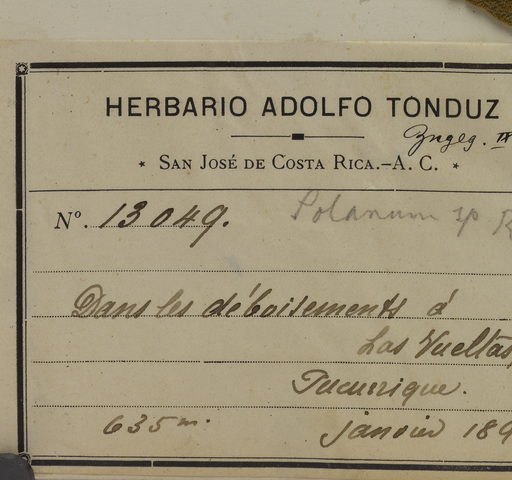 HERBARIO ADOLFO TONDUZ
SAN JOSÉ DE COSTA RICA.-A. C.
Nº. 13049. Solanum sp
Dans les déboisements á
Las Vueltas,
Tucurrique.
635 m. janvier 189